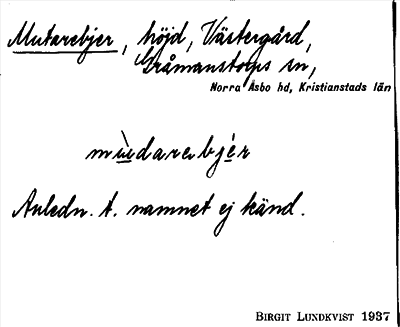 Mutarebjer, höjd, Västergård,
Gråmanstorps sn,
Norra Åsbo hd, Kristianstads län
mùdarebjér
Anledn. t. namnet ej känd.
BIRGIT LUNDKVIST 1937